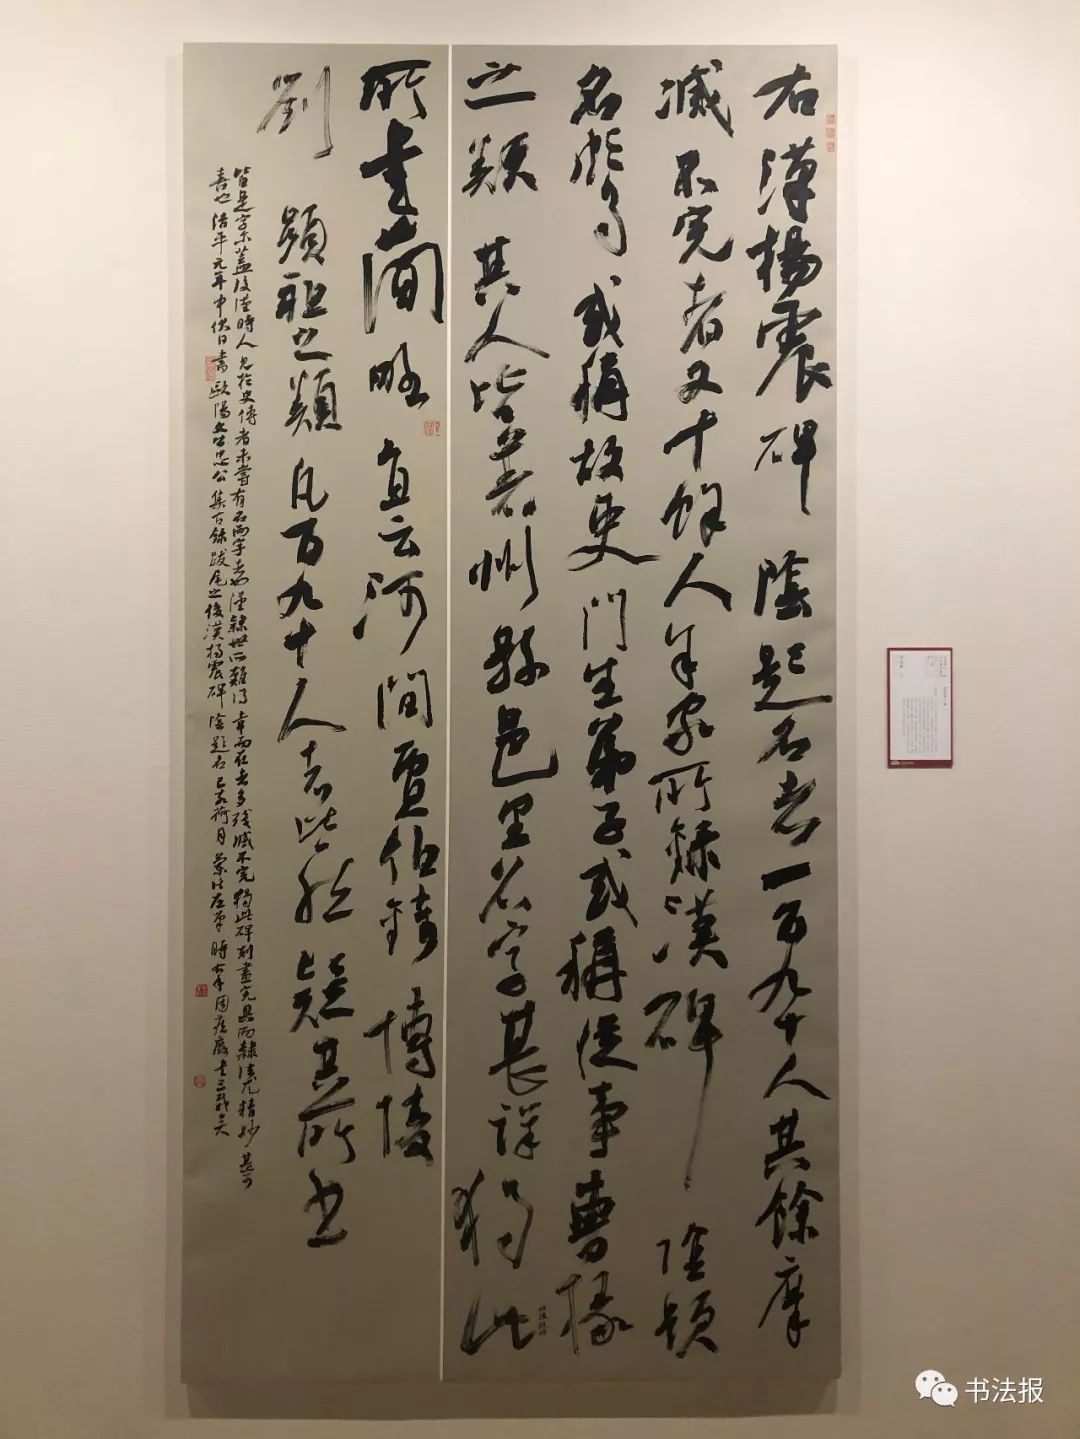 右漢楊震碑陰題名者一百九十人其餘摩
滅不完者又十餘人余家所錄漢碑陰題
名頗多或稱故吏門生弟子或稱從事曹掾
之類其人皆著州縣邑里名字甚詳獨此
所書簡略直云河間賈伯錡博陵
劉顯祖之類凡百九十人者皆然疑其所書
皆是字尔蓋後漢時人見於史傳者未嘗有名兩字者也漢隸世所難得幸而在者多殘滅不完獨此碑刻畫完具而隸法尤精妙甚可
喜也治平元年中伏日書歐陽文忠公集古錄跋尾之後漢楊震碑陰題名己亥荷月
书法报